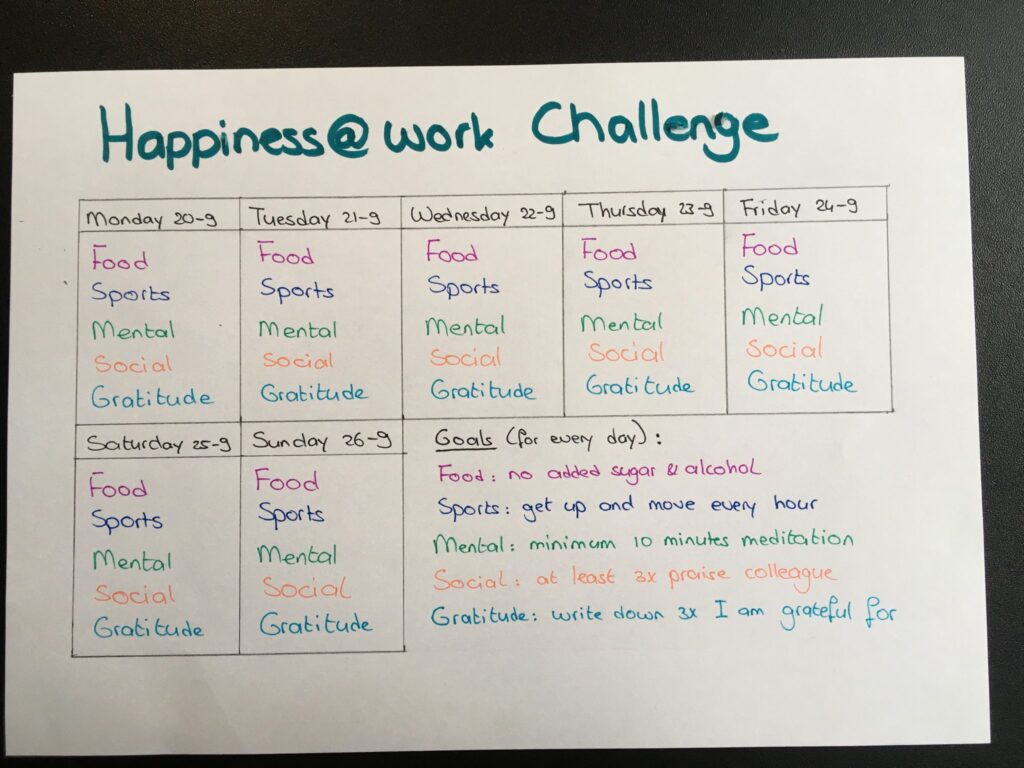 Happiness@work Challenge
Monday 20-9
Food
Sports
Mental
Social
Gratitude
Tuesday 21-9
Food
Sports
Mental
Social
Gratitude
Wednesday 22-9
Food
Sports
Mental
Social
Gratitude
Thursday 23-9
Food
Sports
Mental
Social
Gratitude
Friday 24-9
Food
Sports
Mental
Social
Gratitude
Saturday 25-9
Food
Sports
Mental
Social
Gratitude
Sunday 26-9
Food
Sports
Mental
Social
Gratitude
Goals (for every day):
Food: no added sugar & alcohol
Sports: get up and move every hour
Mental: minimum 10 minutes meditation
Social: at least 3x praise colleague
Gratitude: write down 3x I am grateful for